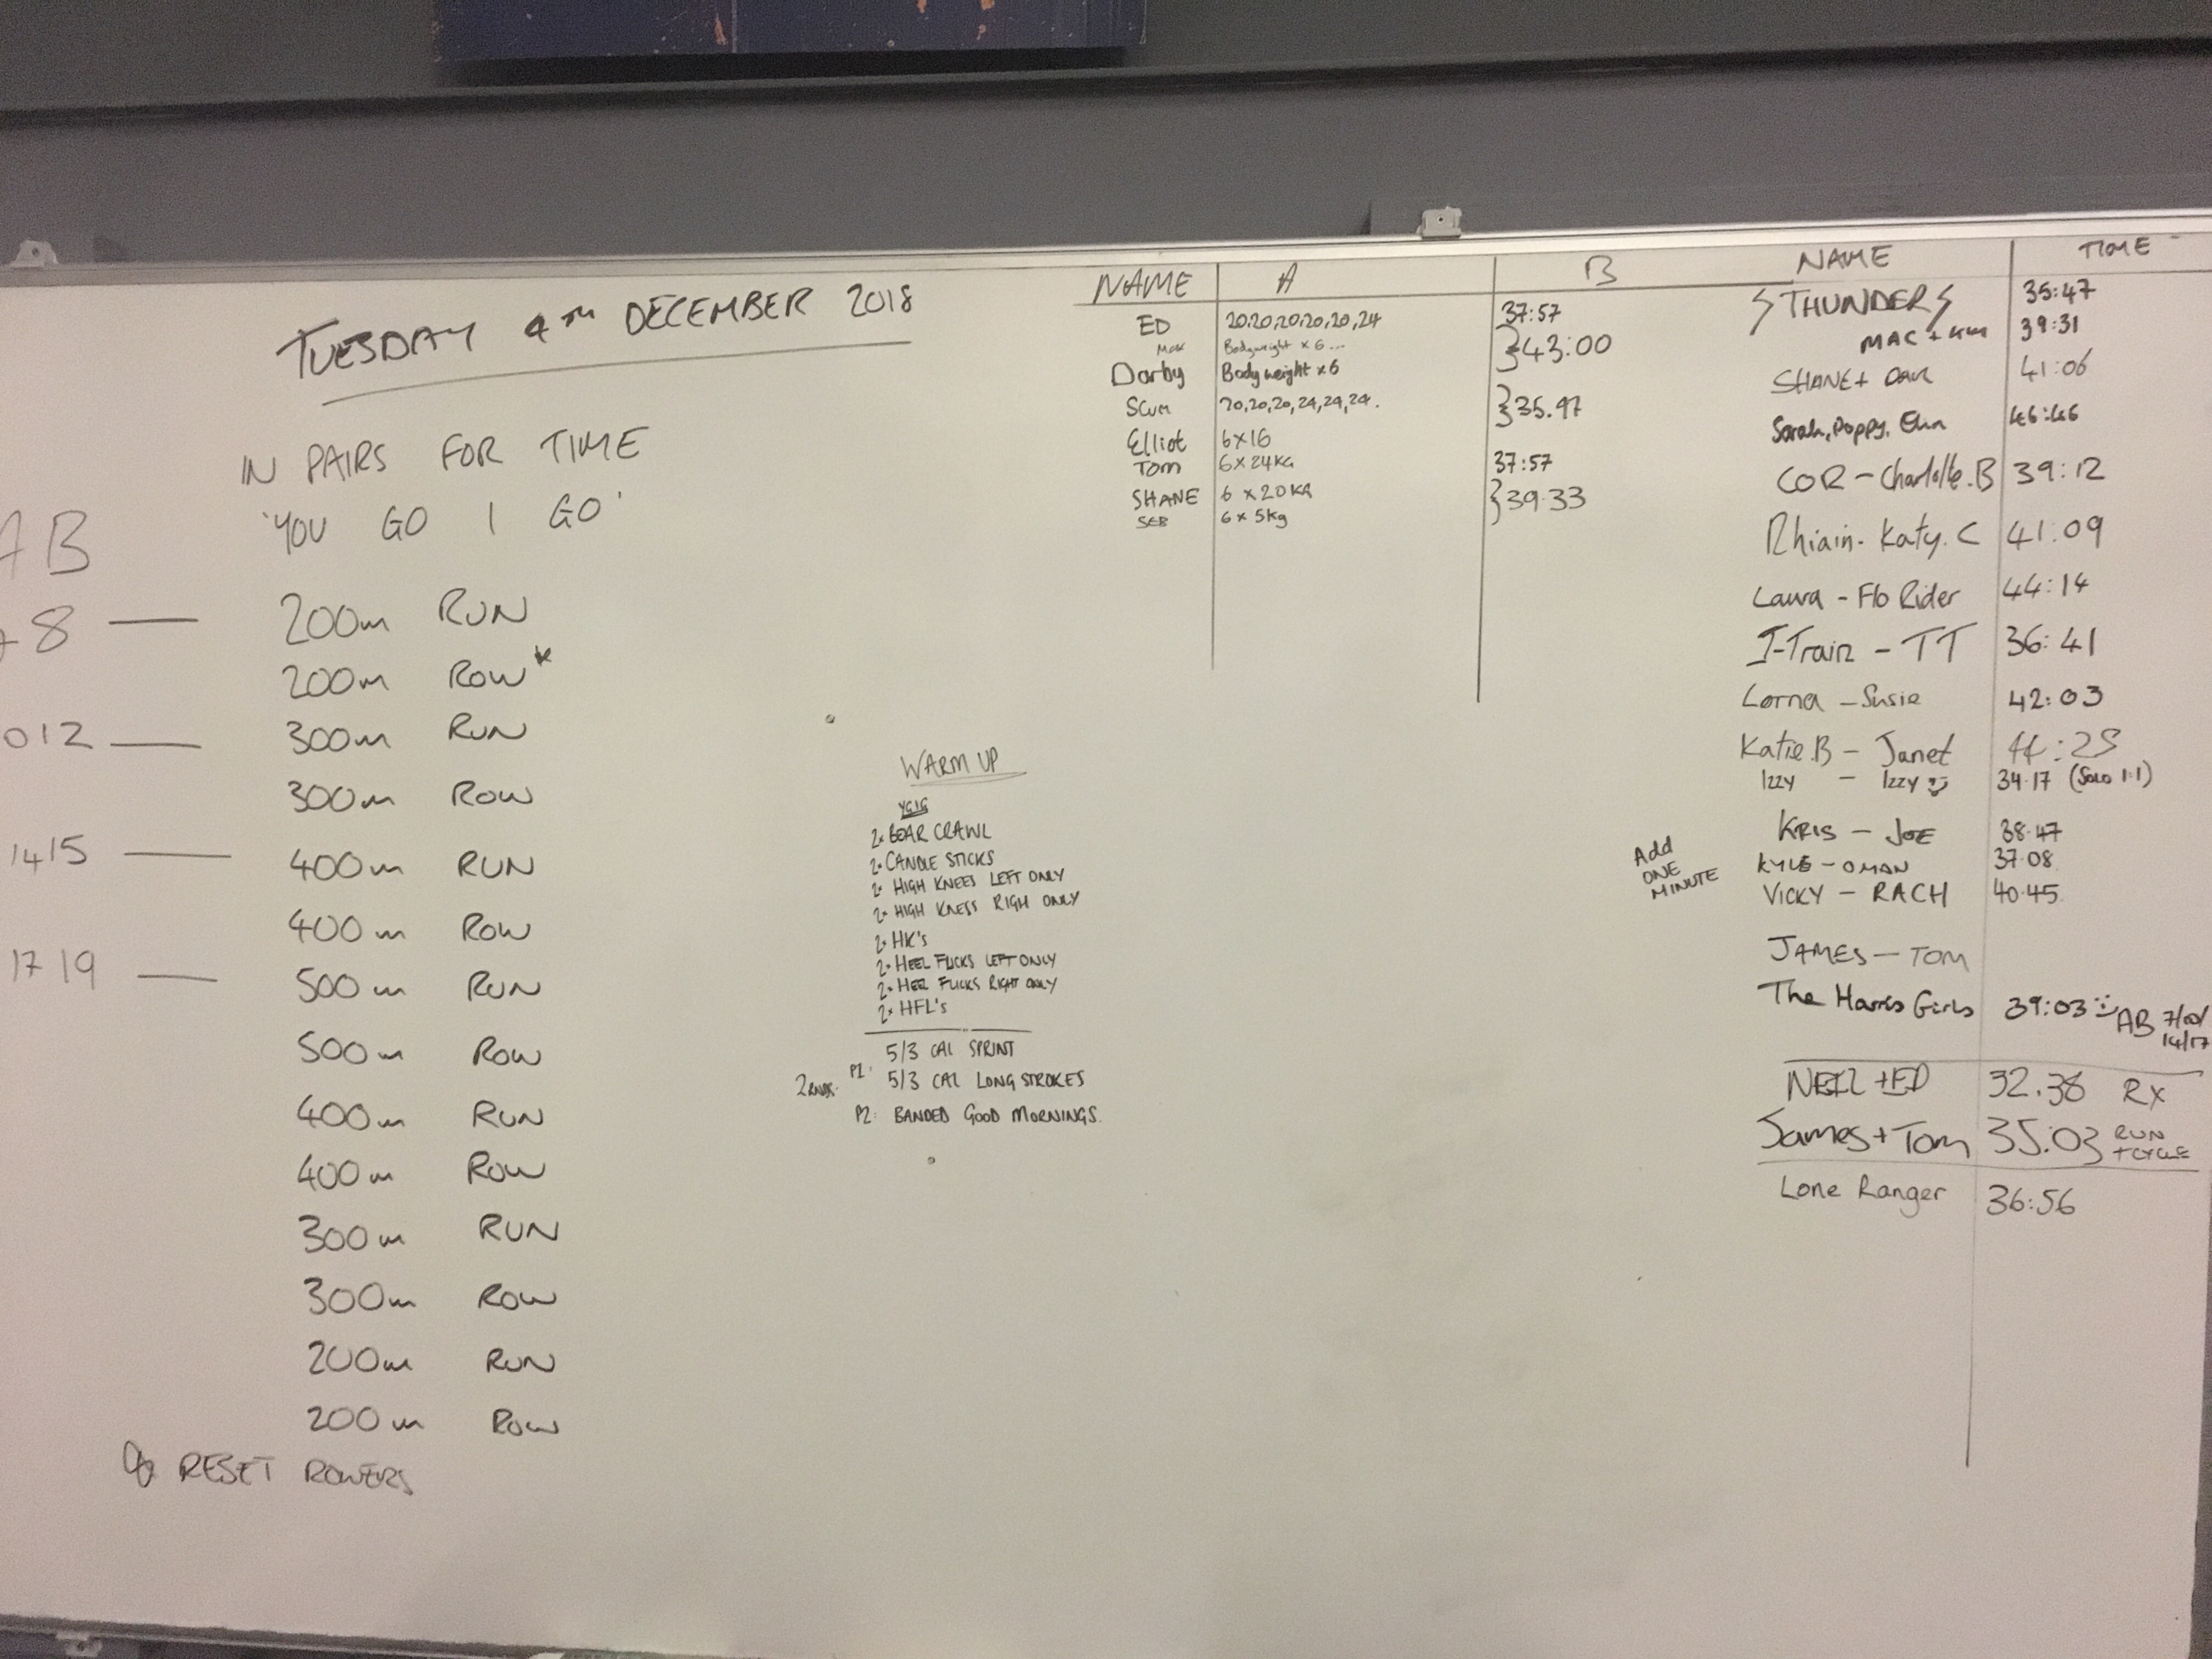 TUESDAY 4TH DECEMBER 2018
IN PAIRS FOR TIME
'YOU GO I GO'
AB
8 — 200m RUN
200m ROW*
012 — 300m RUN
300m ROW
1415 — 400m RUN
400m ROW
1719 — 500m RUN
500m ROW
400m RUN
400m ROW
300m RUN
300m ROW
200m RUN
200m ROW
RESET ROWERS
WARM UP
YGIG
2x BEAR CRAWL
2x CANDLE STICKS
2x HIGH KNEES LEFT ONLY
2x HIGH KNESS RIGH ONLY
2x HK's
2x HEEL FLICKS LEFT ONLY
2x HEEL FLICKS RIGHT ONLY
2x HFL's
5/3 CAL SPRINT
2 RNDS. P1: 5/3 CAL LONG STROKES
P2: BANDED GOOD MORNINGS.
NAME A B
ED 20,20,20,20,20,24 37:57
Max Bodyweight x 6...
}43:00
Darby Bodyweight x6
Scum 20,20,20,24,24,24. }35.47
Elliot 6x16
Tom 6x24KG 37:57
SHANE 6 x 20KG }39.33
SEB 6 x 5kg
NAME TIME
THUNDER 35:47
MAC + 39:31
SHANE + 41:06
Sarah, Poppy, 46:46
COR - Charlotte.B 39:12
Rhiain - Katy.C 41:09
Laura - Flo Rider 44:14
J-Train - TT 36:41
Lorna - Susie 42:03
Katie.B - Janet
Izzy - Izzy 34.17 (Solo 1:1)
KRIS - JOE 38.47
Add ONE MINUTE
KYLE - OMAN 37.08
VICKY - RACH 40.45
JAMES - TOM
The Harris Girls 39:03 AB 7/10/
14/17
NEIL + ED 32.38 RX
James + Tom 35:03 RUN
+ CYCLE
Lone Ranger 36:56